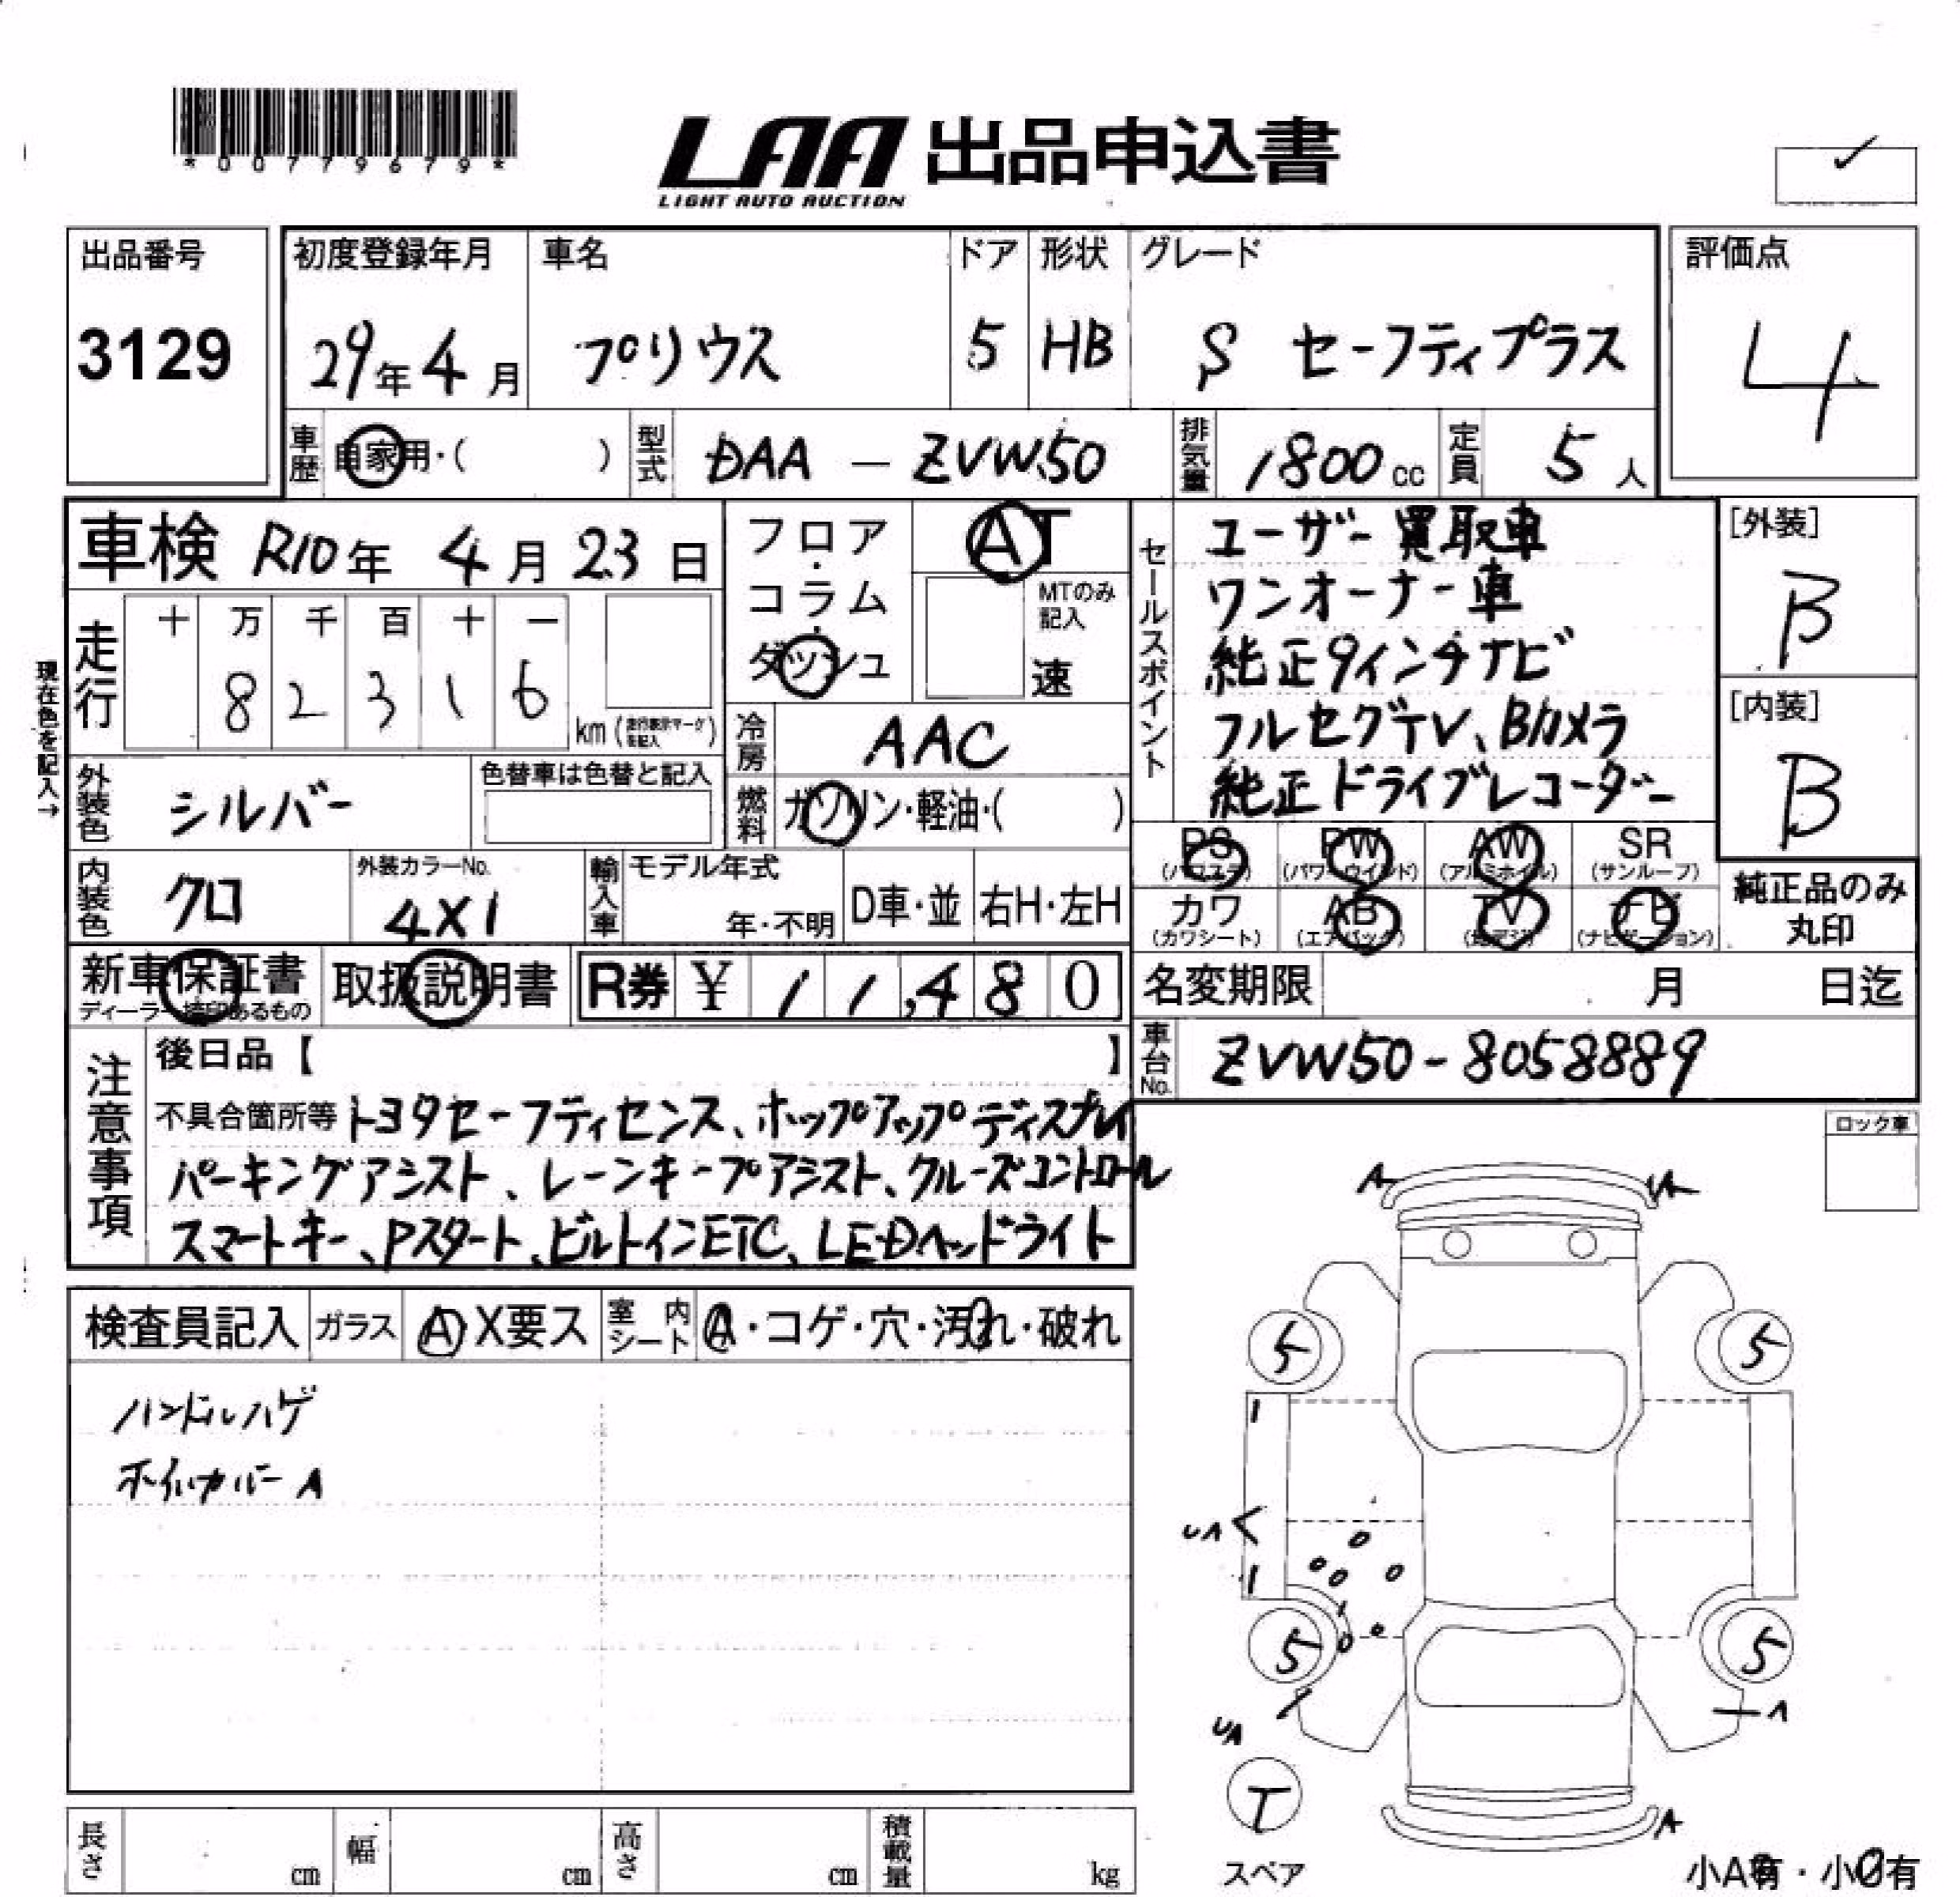 *00779679*
LAA 出品申込書
LIGHT AUTO AUCTION
出品番号
3129
初度登録年月
29年4月
車名
プリウス
ドア
5
形状
HB
グレード
S セーフティプラス
評価点
4
車歴 自家用・( )
型式 DAA - ZVW50
排気量 1800cc
定員 5人
車検 R10年 4月 23日
走行
十 万 千 百 十 一
8 2 3 1 6
km(走行表示マークを記入)
現在色を記入→
フロア・コラム・ダッシュ
AT
MTのみ記入
速
冷房 AAC
燃料 ガソリン・軽油・( )
セールスポイント
ユーザー買取車
ワンオーナー車
純正9インチナビ
フルセグTV、Bカメラ
純正ドライブレコーダー
[外装]
B
[内装]
B
外装色 シルバー
色替車は色替と記入
内装色 クロ
外装カラーNo.
4X1
輸入車 モデル年式
年・不明
D車・並
右H・左H
PS (パワステ)
PW (パワーウインド)
AW (アルミホイル)
SR (サンルーフ)
カワ (カワシート)
AB (エアバック)
TV (地デジ)
ナビ (ナビゲーション)
純正品のみ
丸印
新車保証書
ディーラー捺印あるもの
取扱説明書
R券 ¥ 11,480
名変期限 月 日迄
車台No. ZVW50-8058889
注意事項
後日品【 】
不具合箇所等 トヨタセーフティセンス、ホップアップディスプレイ
パーキングアシスト、レーンキープアシスト、クルーズコントロール
スマートキー、Pスタート、ビルトインETC、LEDヘッドライト
ロック車
検査員記入
ガラス A X要ス
室内シート A・コゲ・穴・汚れ・破れ
ハンドルハゲ
ホイルカバーA
A A
5 5
UA
5 5
UA A
T
スペア
A
小A有・小U有
長さ cm
幅 cm
高さ cm
積載量 kg